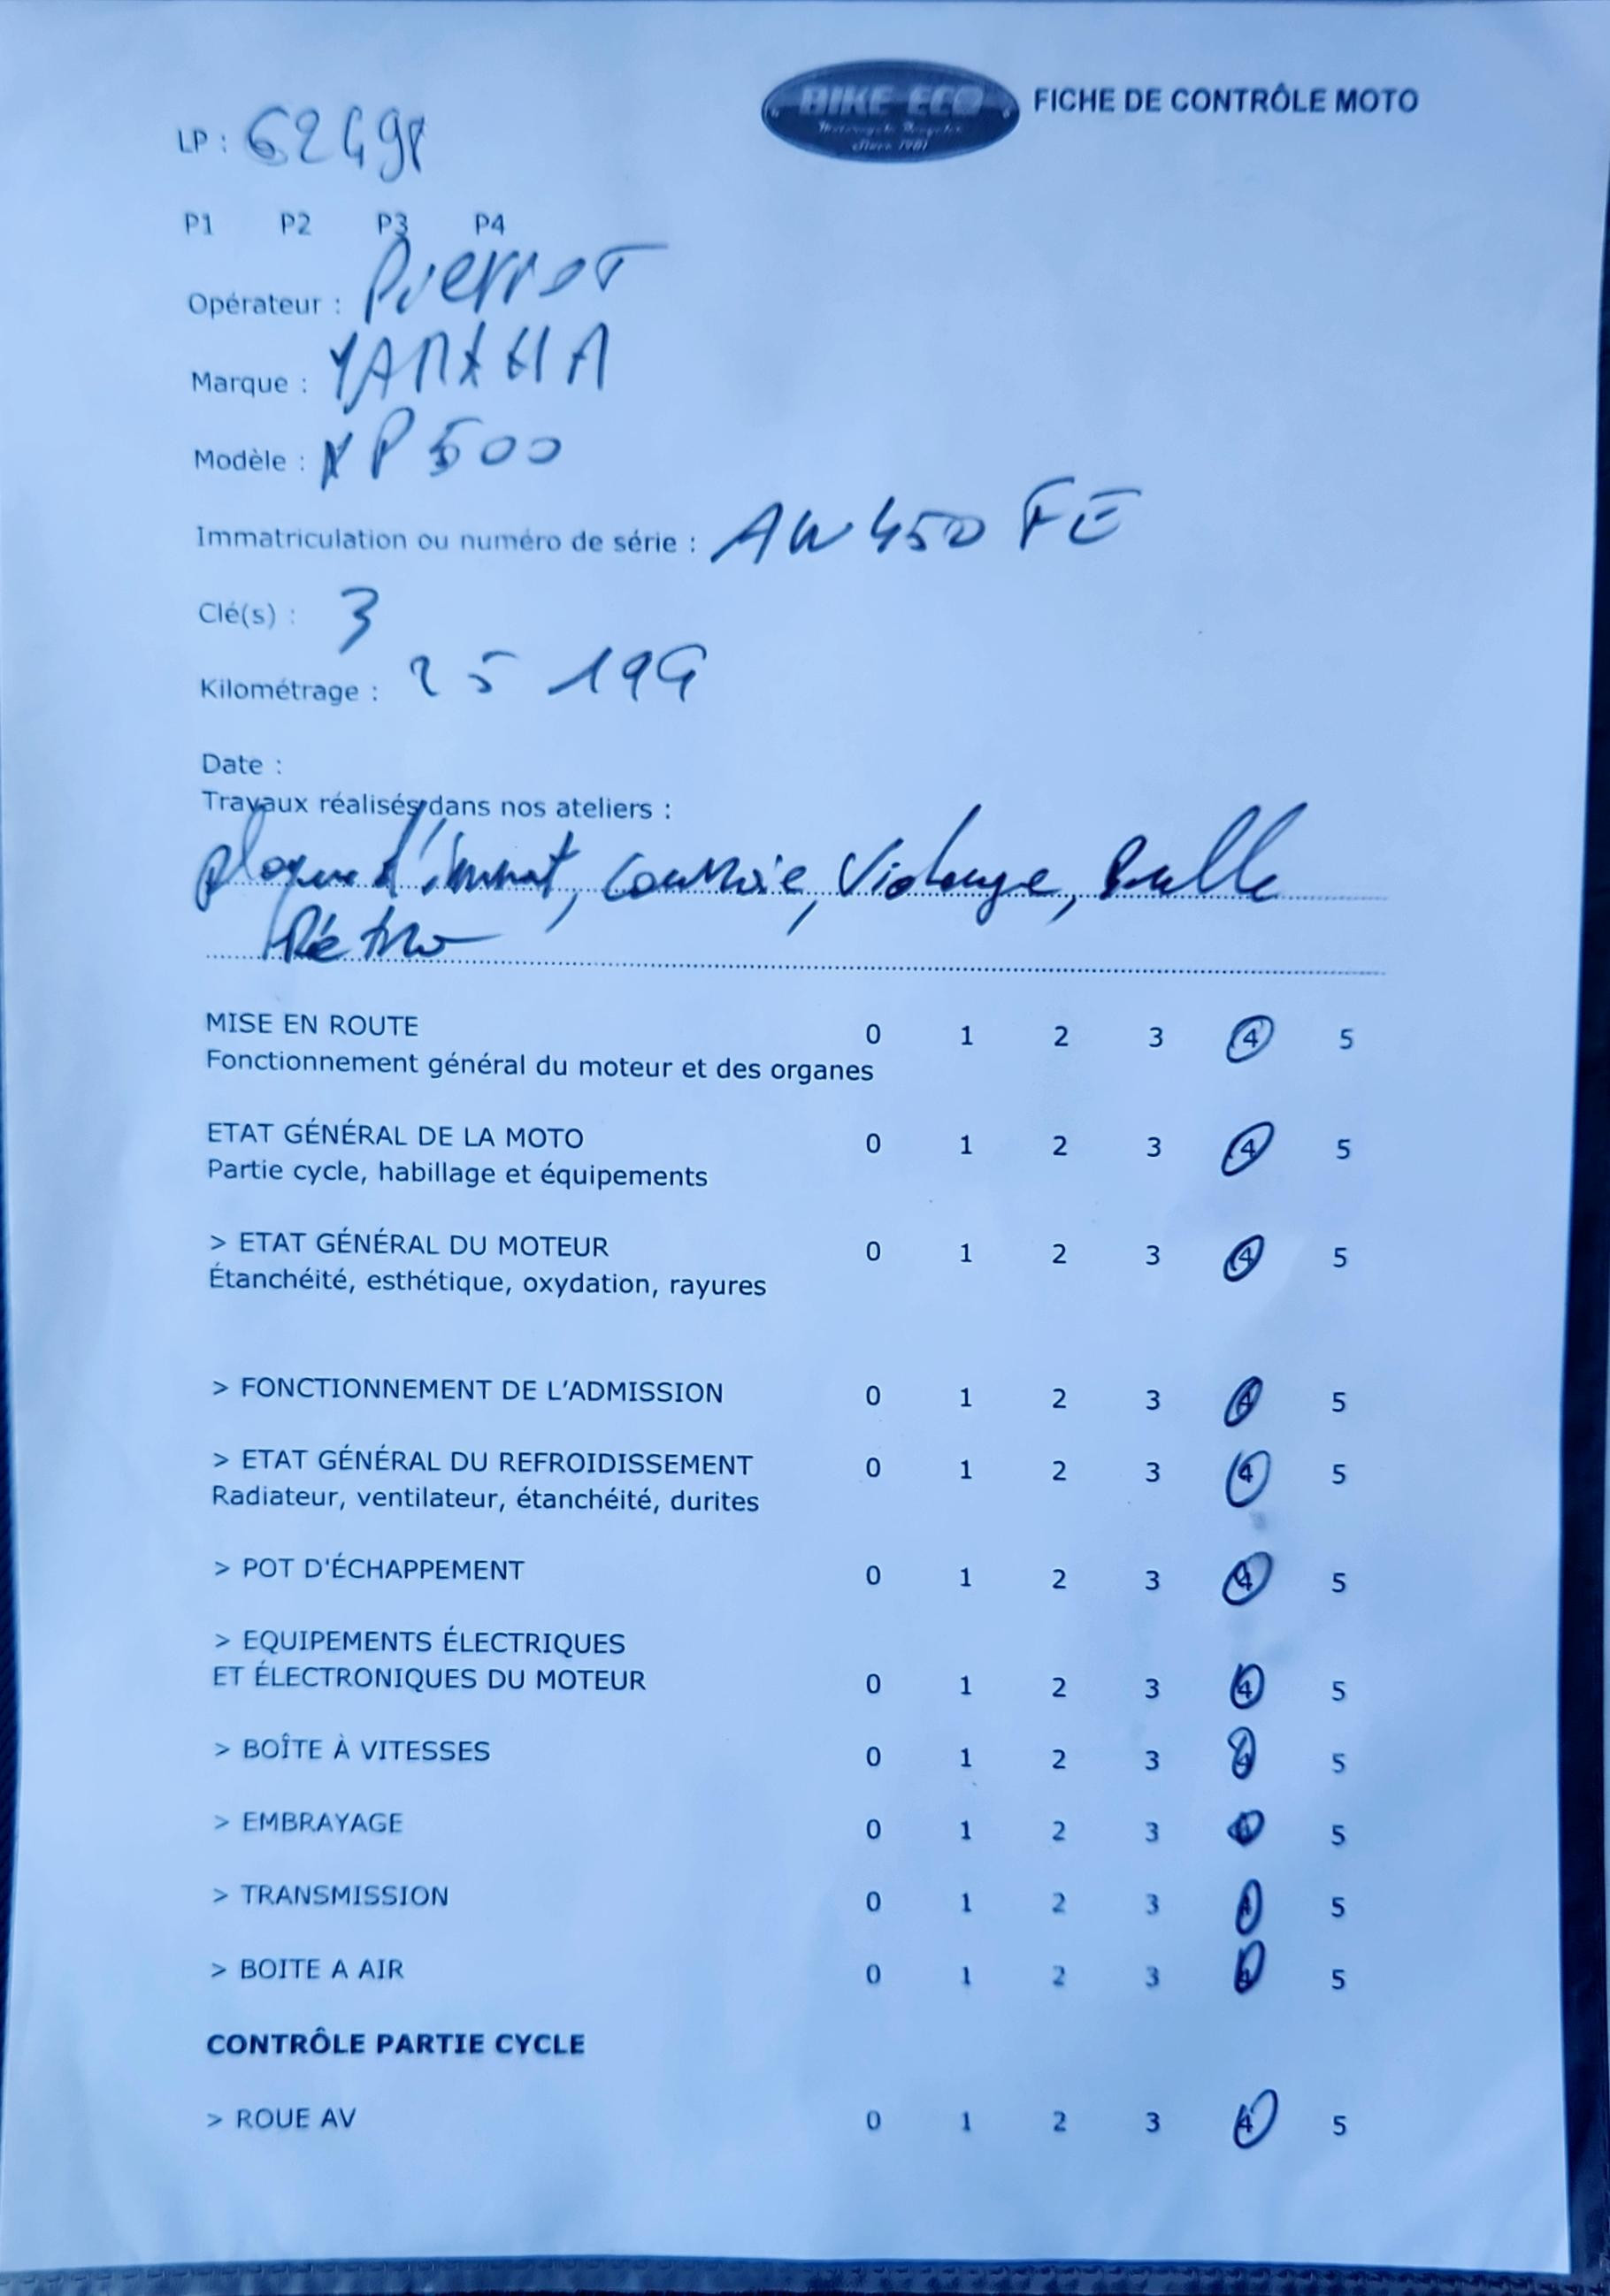 BIKE ECO
Since 1981
FICHE DE CONTRÔLE MOTO
LP : 62498
P1 P2 P3 P4
Opérateur : Pierrot
Marque : YAMAHA
Modèle : XP500
Immatriculation ou numéro de série : AW450FE
Clé(s) : 3
Kilométrage : 25 199
Date :
Travaux réalisés dans nos ateliers :
plaque d'immat, Courroie, Vidange, Bulle
Rétro
MISE EN ROUTE 0 1 2 3 4 5
Fonctionnement général du moteur et des organes
ETAT GÉNÉRAL DE LA MOTO 0 1 2 3 4 5
Partie cycle, habillage et équipements
> ETAT GÉNÉRAL DU MOTEUR 0 1 2 3 4 5
Étanchéité, esthétique, oxydation, rayures
> FONCTIONNEMENT DE L'ADMISSION 0 1 2 3 4 5
> ETAT GÉNÉRAL DU REFROIDISSEMENT 0 1 2 3 4 5
Radiateur, ventilateur, étanchéité, durites
> POT D'ÉCHAPPEMENT 0 1 2 3 4 5
> EQUIPEMENTS ÉLECTRIQUES
ET ÉLECTRONIQUES DU MOTEUR 0 1 2 3 4 5
> BOÎTE À VITESSES 0 1 2 3 4 5
> EMBRAYAGE 0 1 2 3 4 5
> TRANSMISSION 0 1 2 3 4 5
> BOITE A AIR 0 1 2 3 4 5
CONTRÔLE PARTIE CYCLE
> ROUE AV 0 1 2 3 4 5